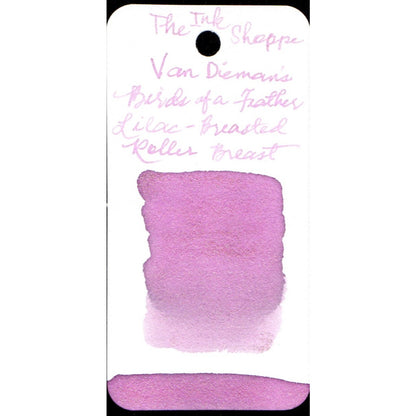 The Ink Shoppe
Van Dieman's
Birds of a Feather
Lilac-Breasted
Roller Breast